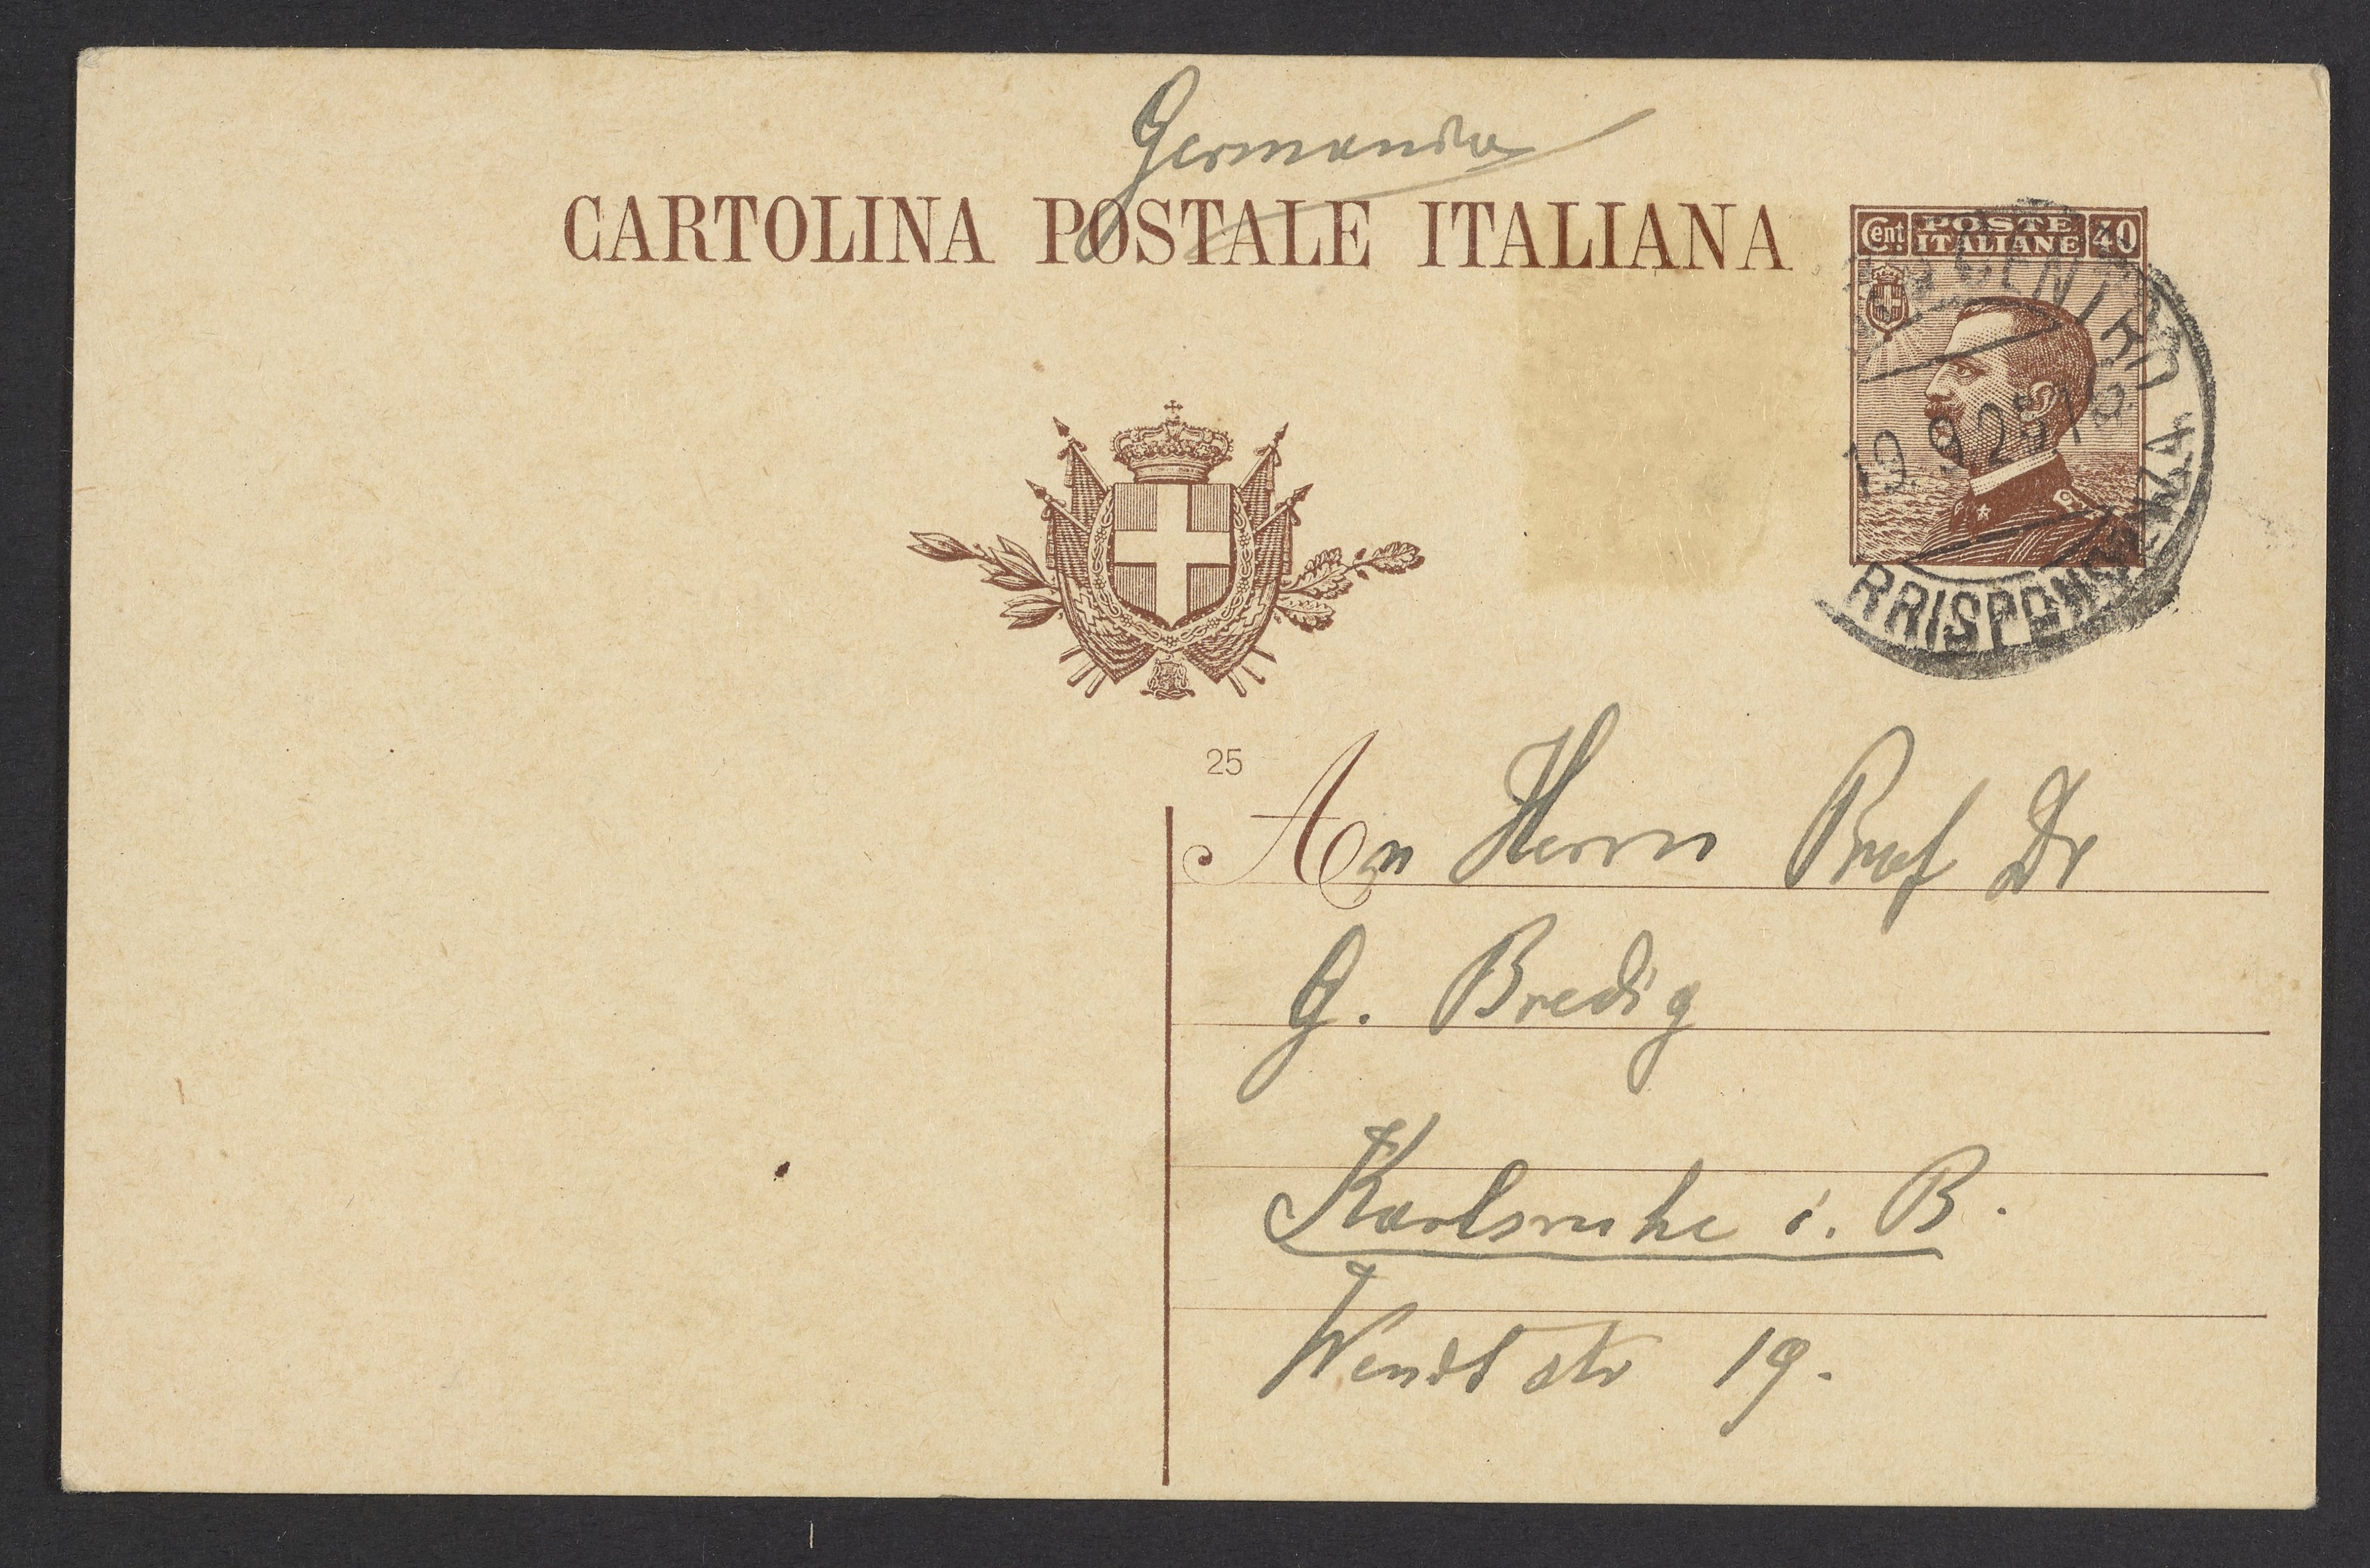 Germania
CARTOLINA POSTALE ITALIANA
Cent POSTE ITALIANE 40
CENTRO
19 9 25 18
RRISPONDENZA
25
An Herrn Prof Dr
G. Bredig
Karlsruhe i. B.
Wendtstr 19.